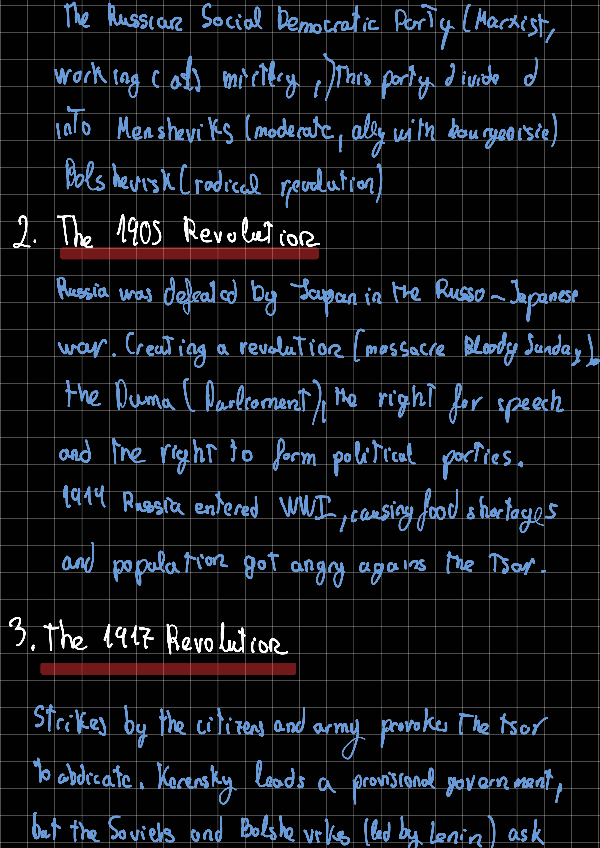 The Russian Social Democratic Party (Marxist,
working class military,) This party divided
into Mensheviks (moderate, ally with bourgeoisie)
Bolshevisk (radical revolution)
2. The 1905 Revolution
Russia was defeated by Japan in the Russo-Japanese
war. Creating a revolution (massacre Bloody Sunday).
the Duma (Parliament), the right for speech
and the right to form political parties.
1914 Russia entered WWI, causing food shortages
and population got angry agains the Tsar.
3. The 1917 Revolution
Strikes by the citizens and army provokes the tsar
to abdicate. Kerensky leads a provisional government,
but the Soviets and Bolshevikes (led by Lenin) ask